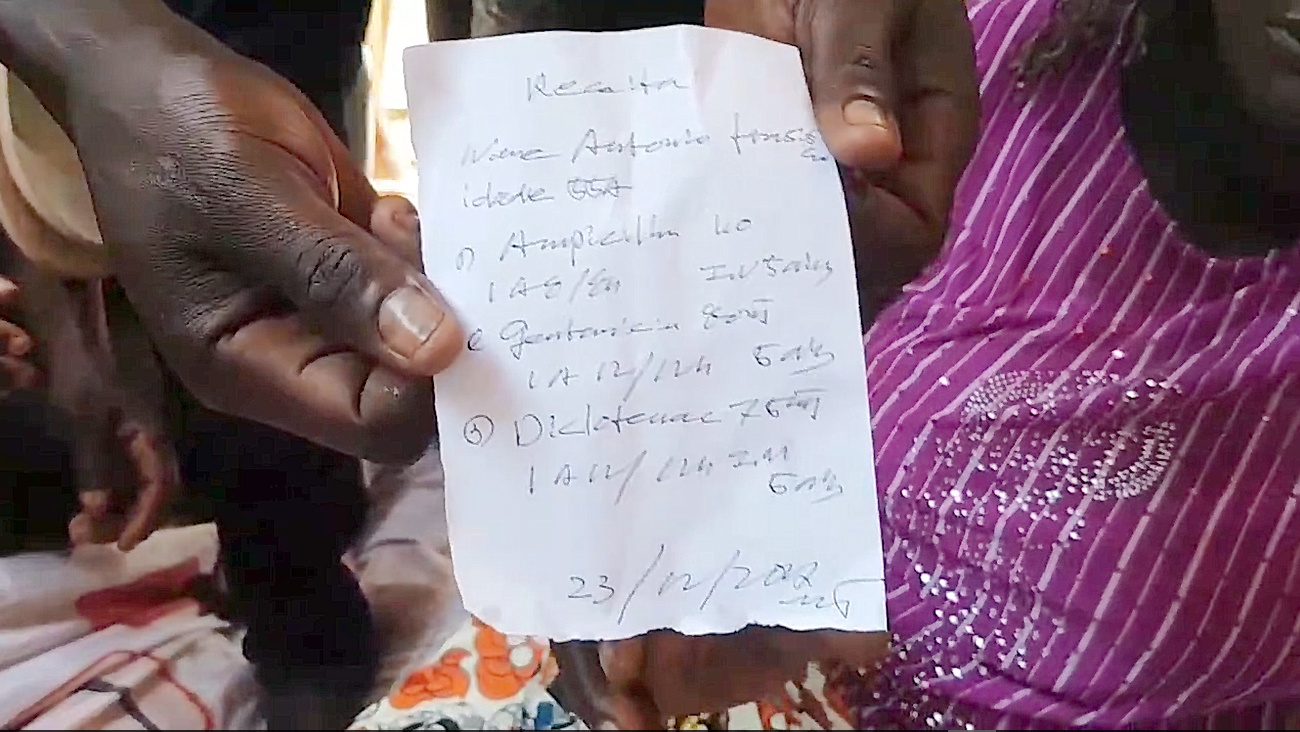 Receita
Nome Antonio
idade 55A
① Ampicillin
1 A 8/8h IV 5 dias
② Gentamicin 80mg
1 A 12/12h 5 dias
③ Diclofenac 75mg
1 A 12/12h IM
5 dias
23/12/2022